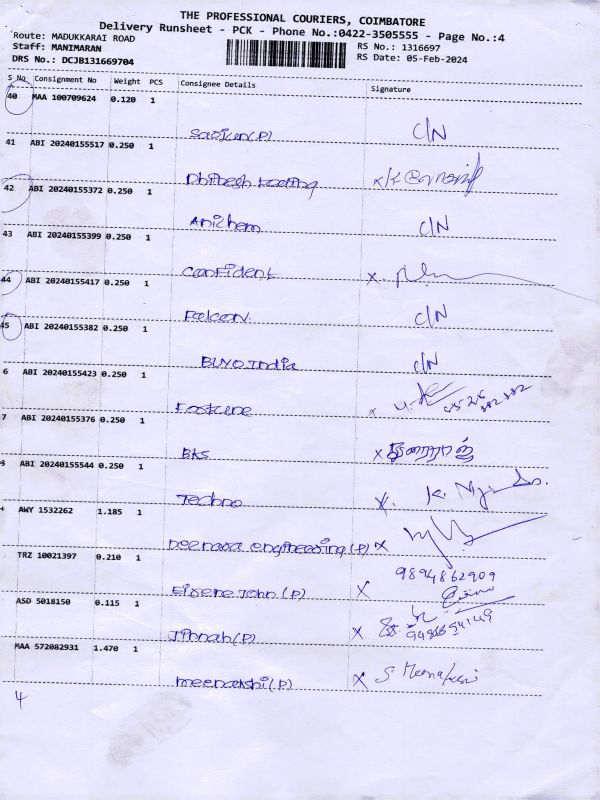 THE PROFESSIONAL COURIERS, COIMBATORE
Delivery Runsheet - PCK - Phone No.:0422-3505555 - Page No.:4
Route: MADUKKARAI ROAD
RS No.: 1316697
Staff: MANIMARAN
RS Date: 05-Feb-2024
DRS No.: DCJB131669704
S No Consignment No Weight PCS Consignee Details Signature
40 MAA 100709624 0.120 1
C/N
41 ABI 20240155517 0.250 1
42 ABI 20240155372 0.250 1
Anichem C/N
43 ABI 20240155399 0.250 1
Confident x
44 ABI 20240155417 0.250 1
Falcon C/N
45 ABI 20240155382 0.250 1
BUYO India C/N
6 ABI 20240155423 0.250 1
x
7 ABI 20240155376 0.250 1
BKS x
ABI 20240155544 0.250 1
Techno x.
AWY 1532262 1.185 1
engineering (P) x
TRZ 10021397 0.210 1
9894862909
John (P) x
ASD 5018150 0.115 1
Jinnah (P) x
MAA 572082931 1.470 1
meenakshi (P) x S. Meenakshi
4